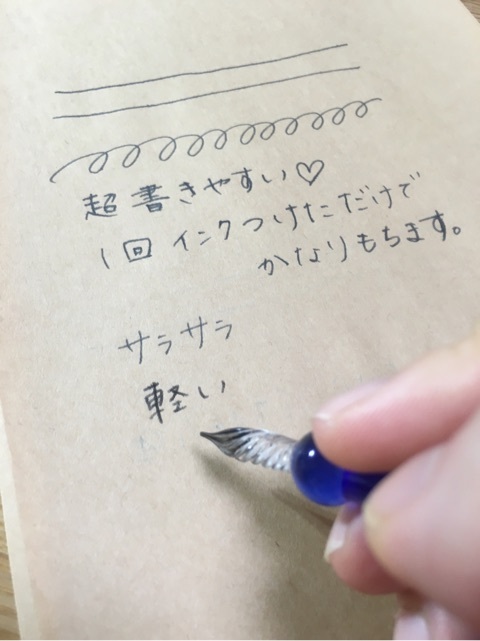 超書きやすい♡
1回インクつけただけで
かなりもちます。
サラサラ
軽い